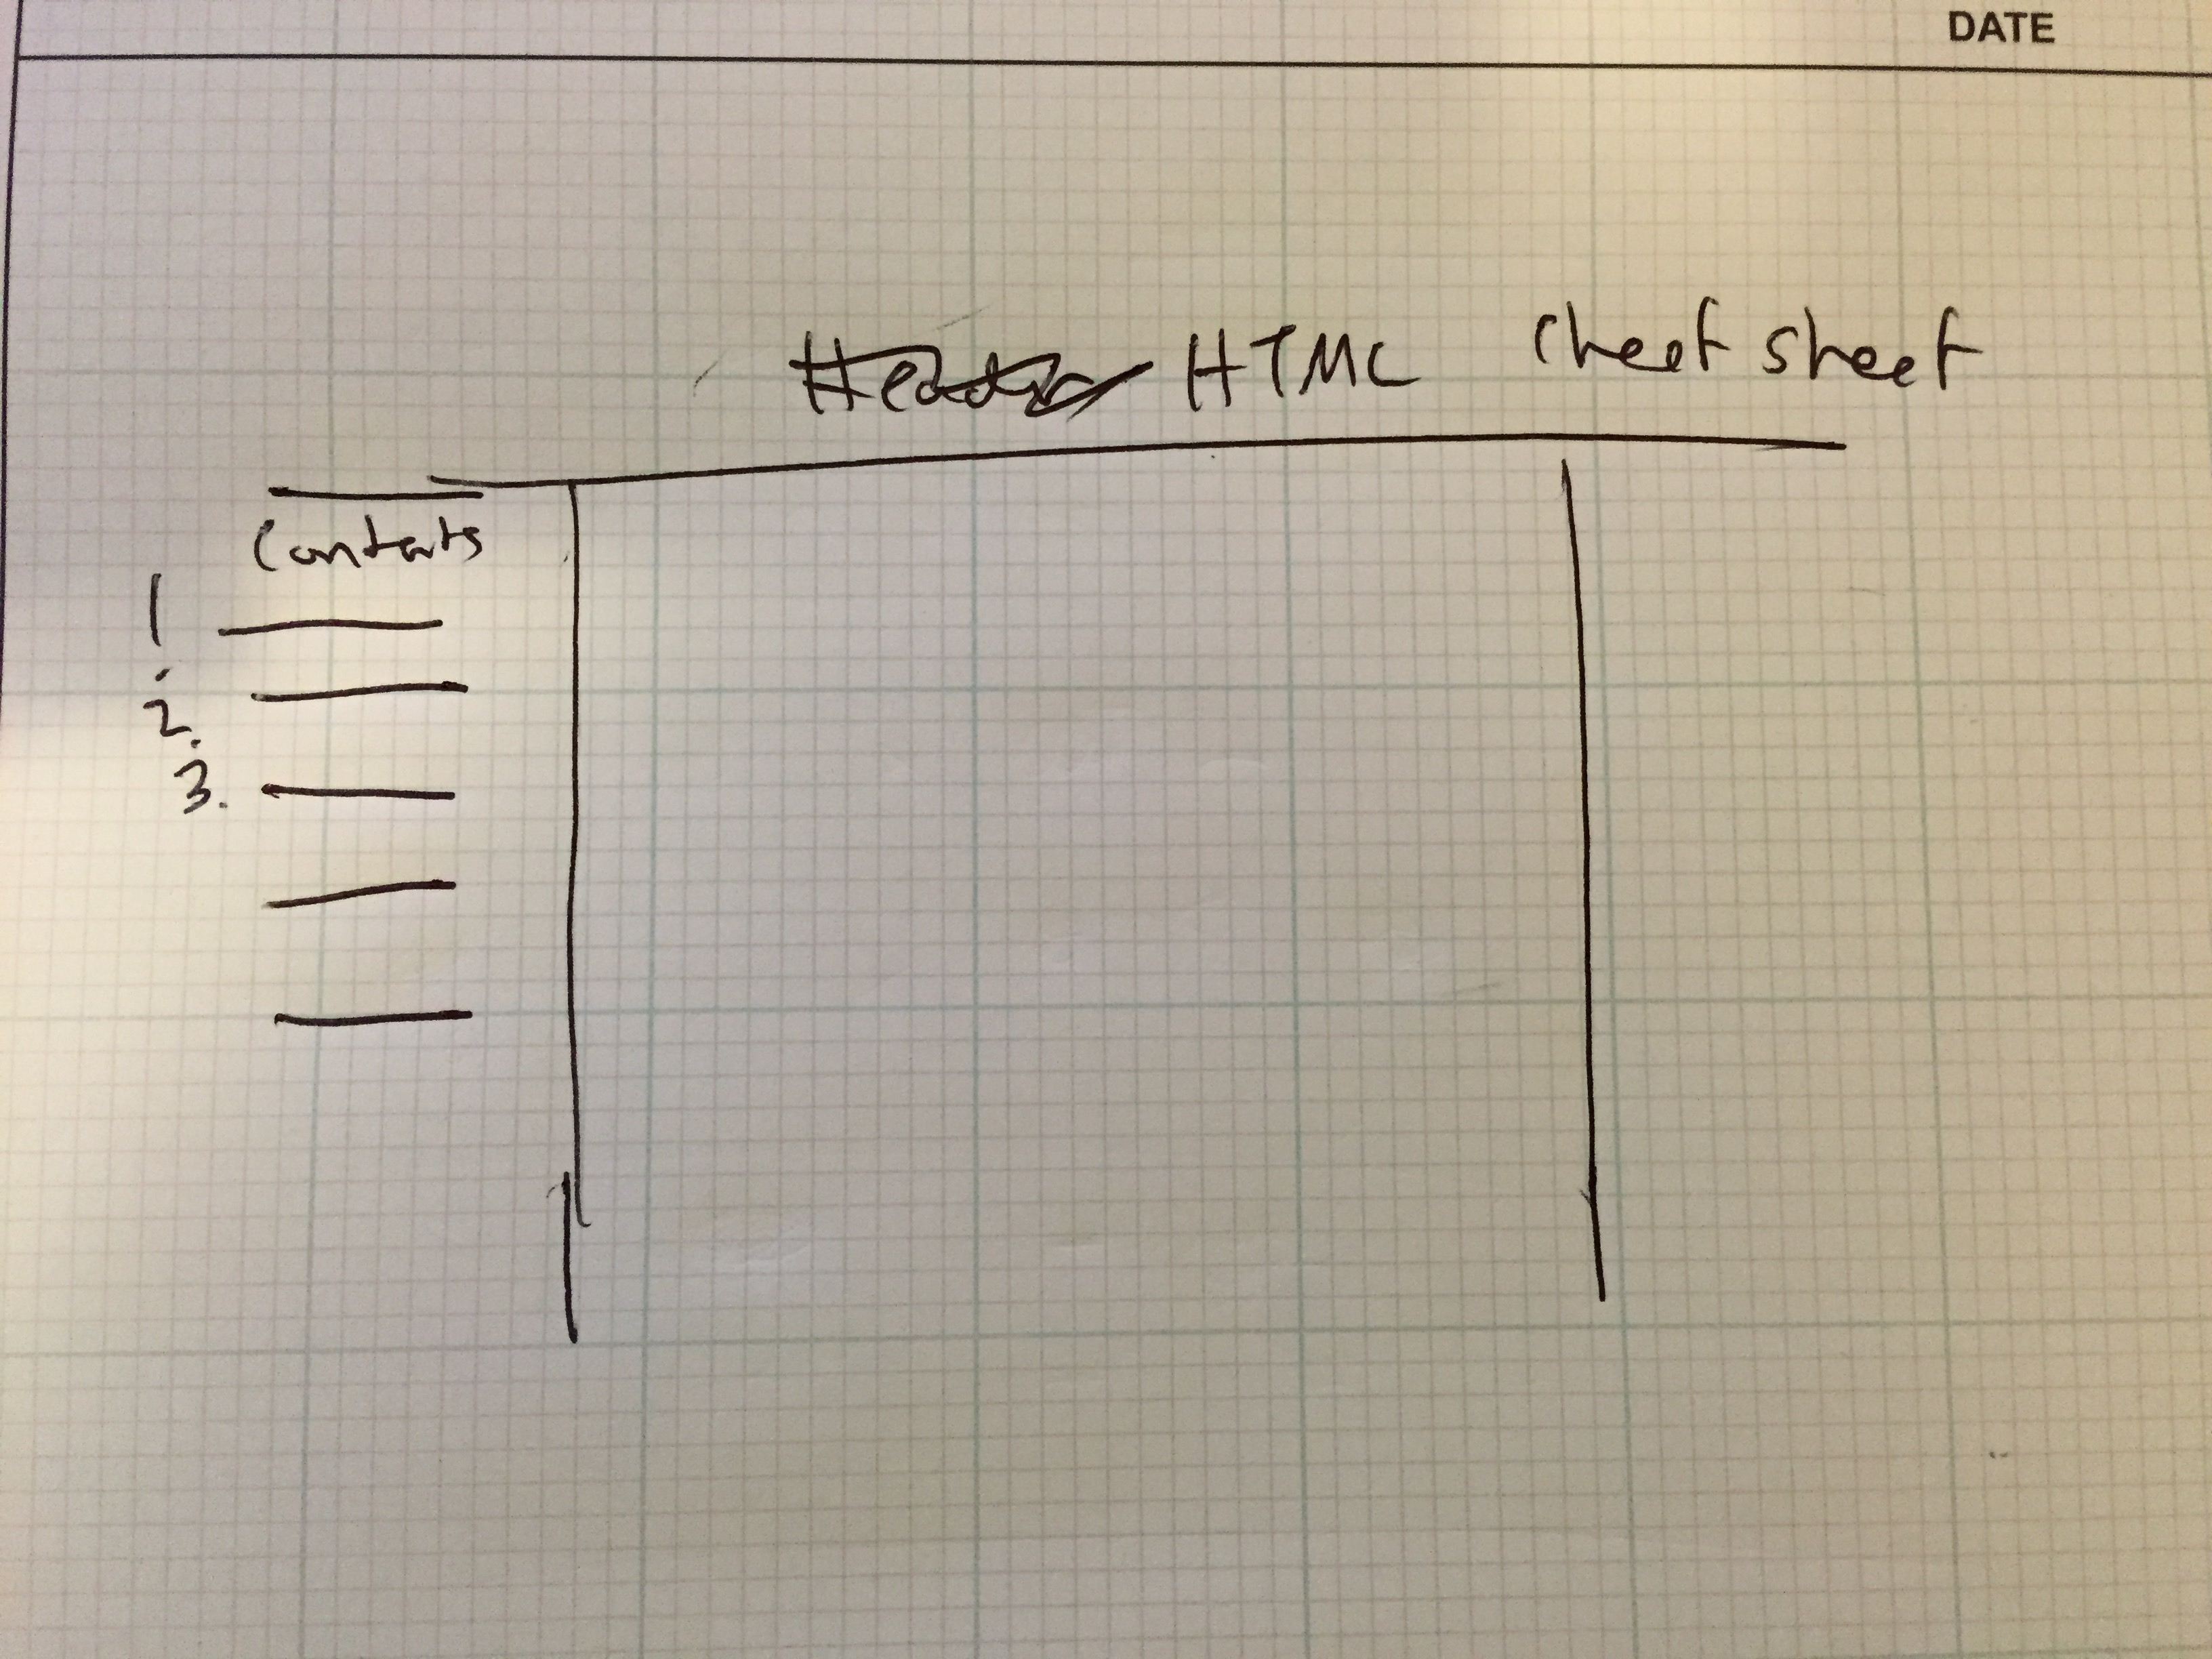 DATE
Header HTML Cheet sheet
Contents
1.
2.
3.